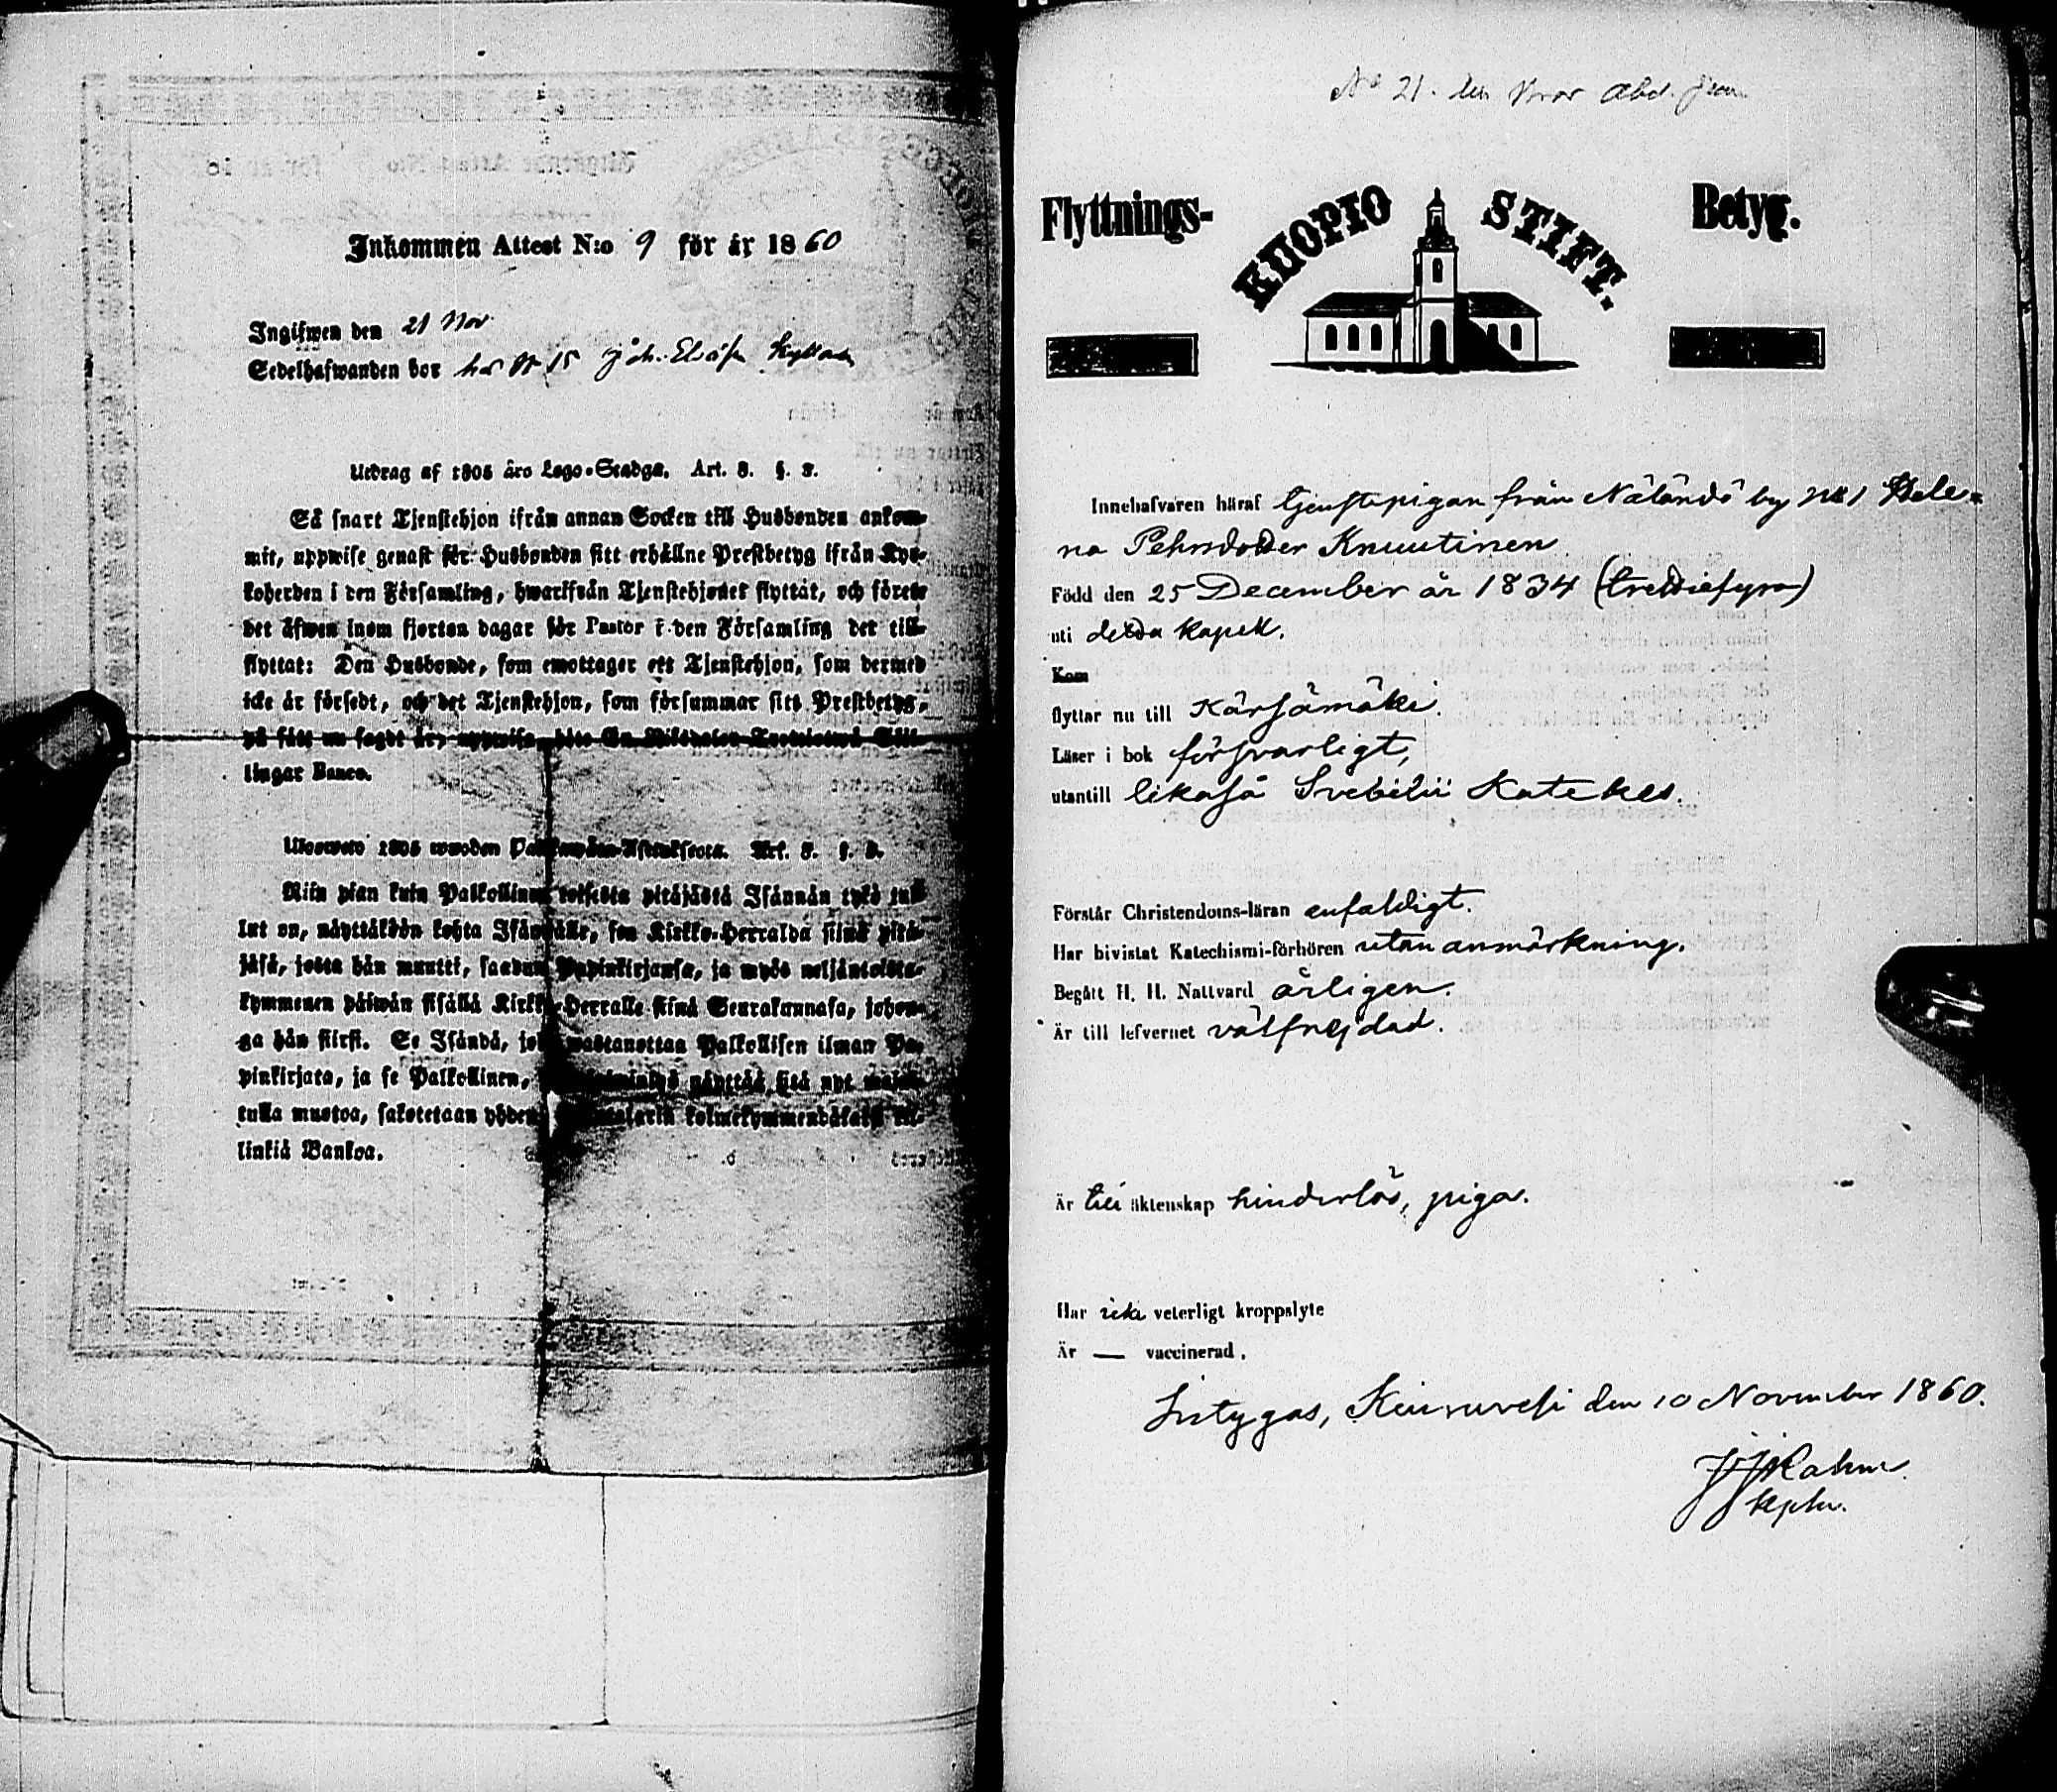 Inkommen Attest N:o 9 för år 1860
Ingifwen den 21 Nov
Sedelhafwanden bor hos № 15 Joh. Eliass
Utdrag af 1805 års Lego-Stadga. Art. 3. §. 2.
Så snart Tjenstehjon ifrån annan Socken till Husbonden ankom-
mit, uppwise genast för Husbonden sitt erhållne Prestbetyg ifrån Kyr-
koherden i den Församling, hwarifrån Tjenstehjonet flyttat, och förete
det äfwen inom fjorton dagar för Pastor i den Församling det till-
flyttat: Den Husbonde, som emottager ett Tjenstehjon, som dermed
icke är försedt, och det Tjenstehjon, som försummar sitt Prestbetyg,
på sätt nu sagdt är, uppwisa, böte En Riksdaler Skil-
lingar Banco.
Uloswето 1805 wuoden Art. 3. §. 2.
Niin pian kuin Palkollinen toisesta pitäjästä Isännän tykö tul-
lut on, näyttäköön kohta Isännälle, sen Kirkko-Herralda siinä pitä-
jäsä, josta hän muutti, saadun Papinkirjansa, ja myös neljäntoista-
kymmenen päiwän sisällä Kirkko-Herralle siinä Seurakunnasa, johon-
ga hän siirsi. Se Isändä, joka wastanottaa Palkollisen ilman Pa-
pinkirjata, ja se Palkollinen, näyttää sitä nyt
tulla muotoa, sakotetaan yhden kolmekymmendäkaksi kil-
linkiä Bankoa.
No 21. den Nov
Flyttnings- KUOPIO STIFT. Betyg.
Innehafvaren häraf tjenstepigan från Näländö by № 1 Hele-
na Pehrsdotter Knuutinen
Född den 25 December år 1834 (trettiofyra)
uti detta kapell.
Kom
flyttar nu till Kärsämäki.
Läser i bok försvarligt,
utantill likaså Svebilii Katekes.
Förstår Christendoms-läran enfaldigt.
Har bivistat Katechismi-förhören utan anmärkning.
Begått H. H. Nattvard årligen.
Är till lefvernet välfrejdad.
Är till äktenskap hinderlös, piga.
Har icke veterligt kroppslyte
Är — vaccinerad,
Intygas, Kiuruvesi den 10 November 1860.